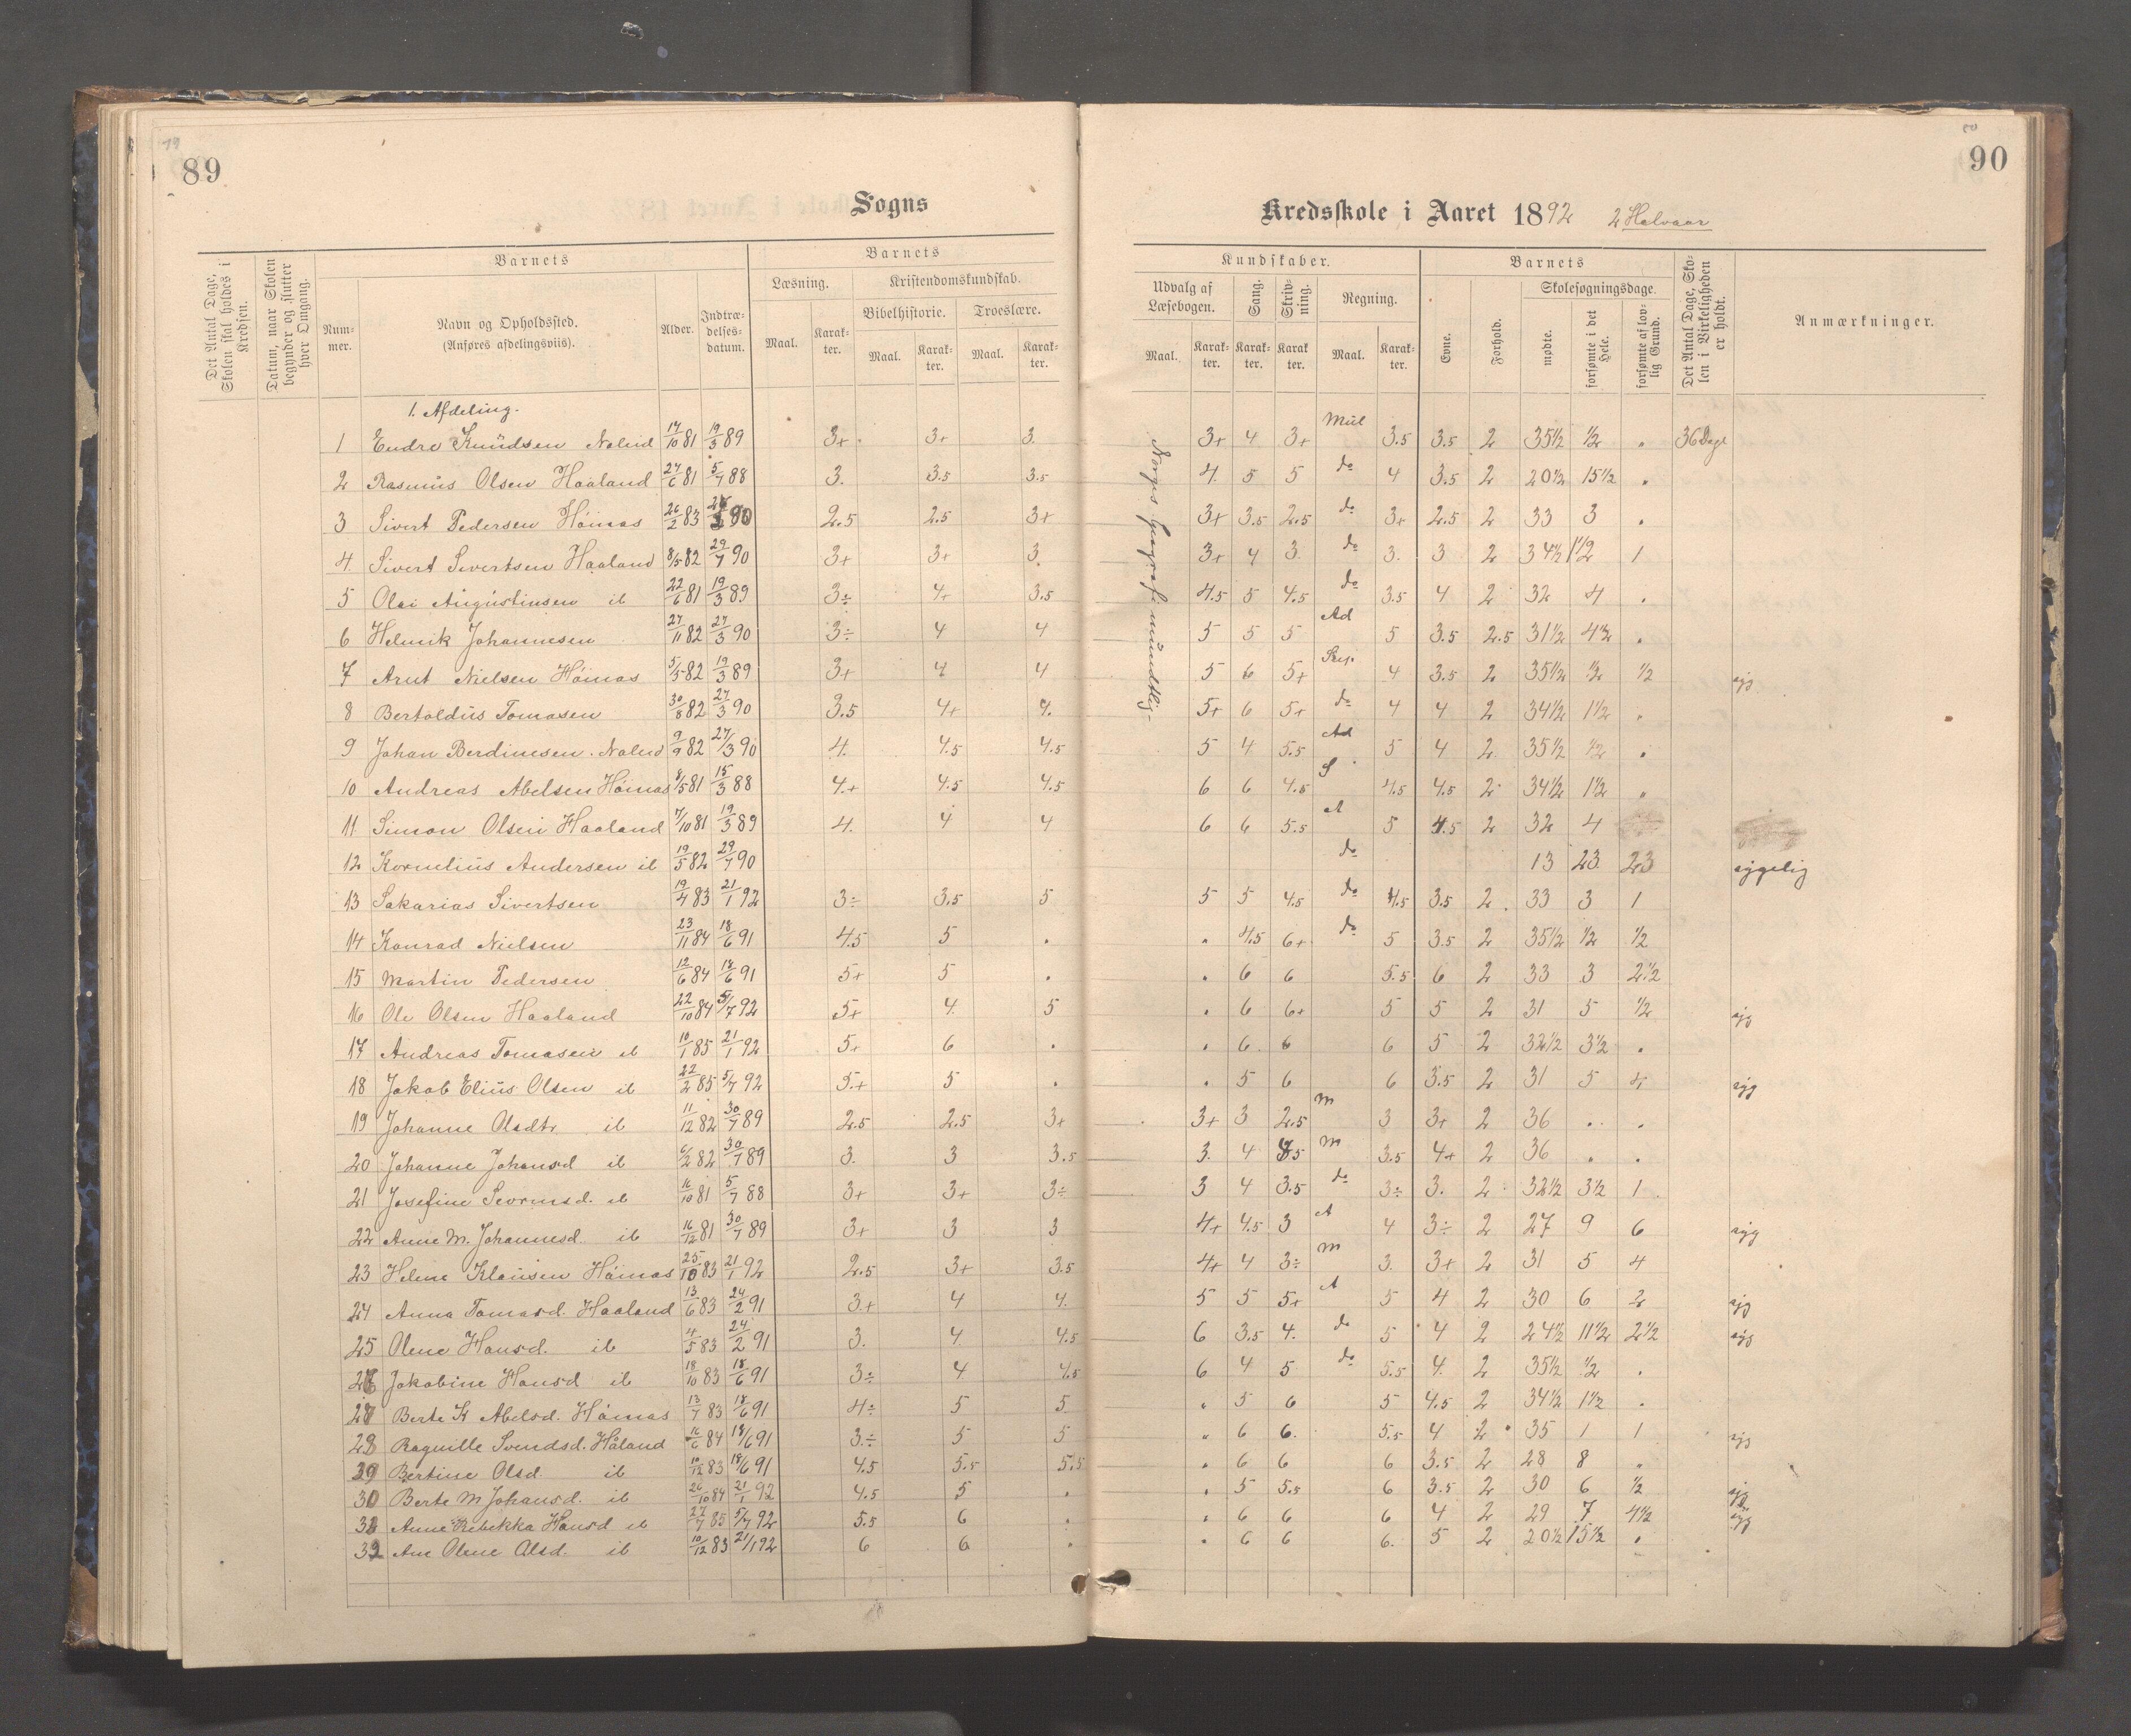 89
Sogns
Det Antal Dage, Skolen skal holdes i Kredsen.
Datum, naar Skolen begynder og slutter hver Omgang.
Barnets
Num-
mer.
Navn og Opholdssted.
(Anføres afdelingsviis).
Alder.
Indtræ-
delses-
datum.
Barnets
Læsning.
Kristendomskundskab.
Bibelhistorie.
Troeslære.
Maal.
Karak-
ter.
Maal.
Karak-
ter.
Maal.
Karak-
ter.
90
Kredsskole i Aaret 1892 2 Halvaar
Kundskaber.
Udvalg af
Læsebogen.
Sang.
Skriv-
ning.
Regning.
Maal.
Karak-
ter.
Karak-
ter.
Karak
ter.
Maal.
Karak-
ter.
Barnets
Evne.
Forhold.
Skolesøgningsdage.
mødte.
forsømte i det Hele.
forsømte af lov-
lig Grund.
Det Antal Dage, Sko-
len i Virkeligheden
er holdt.
Anmærkninger.
Norges Geografi mundtlig
1. Afdeling.
1 Endre Knudsen 17/10 81 19/3 89 3+ 3+ 3. 3+ 4 3+ Mul 3.5 3.5 2 35½ ½ „ 36 Dage
2 Rasmus Olsen Haaland 27/6 81 5/7 88 3. 3.5 3.5 4. 5 5 do 4 3.5 2 20½ 15½ „
3 Sivert Pedersen Høinas 26/2 83 90 2.5 2.5 3+ 3+ 3.5 2.5 do 3+ 2.5 2 33 3 .
4. Sivert Sivertsen Haaland 8/5 82 29/7 90 3+ 3+ 3. 3+ 4 3. do 3. 3 2 34½ 1½ 1
5 Olai Augustinsen ib 22/6 81 19/3 89 3÷ 4+ 3.5 4.5 5 4.5 do 3.5 4 2 32 4 .
6 Helmik Johannesen 27/11 82 27/3 90 3÷ 4 4 5 5 5 Ad 5 3.5 2.5 31½ 4½ „
7 Arnt Nielsen Høinas 5/5 82 19/3 89 3+ 4 4 5 6 5+ 4 3.5 2 35½ ½ ½ syg
8 Bertoldus Tomasen 30/8 82 27/3 90 3.5 4+ 4. 5+ 6 5+ do 4 4 2 34½ 1½ „
9 Johan Berdinesen. 9/9 82 27/3 90 4. 4.5 4.5 5 4 5.5 Ad 5 4 2 35½ ½ .
10 Andreas Abelsen Høinas 8/5 81 15/3 88 4.+ 4.5 4.5 6 6 4.5 S 4.5 4.5 2 34½ 1½ „
11. Simon Olsen Haaland 7/10 81 19/3 89 4. 4 4 6 6 5.5 A 5 4.5 2 32 4
12 Kornelius Andersen ib 19/5 82 29/7 90 do 13 23 23 sygelig
13 Sakarias Sivertsen 19/4 83 21/1 92 3÷ 3.5 5 5 5 4.5 do 4.5 3.5 2 33 3 1
14 Konrad Nielsen 23/11 84 18/6 91 4.5 5 . „ 4.5 6+ do 5 3.5 2 35½ ½ ½
15 Martin Pedersen 12/6 84 18/6 91 5+ 5 . „ 6 6 5.5 6 2 33 3 2½
16 Ole Olsen Haaland 22/10 84 5/7 92 5+ 4. 5 „ 6 6+ 5 5 2 31 5 ½ syg
17 Andreas Tomasen ib 10/1 85 21/1 92 5+ 6 . „ 6 6 6 5 2 32½ 3½ .
18 Jakob Elius Olsen ib 22/2 85 5/7 92 5.+ 5 . „ 5 6 6 3.5 2 31 5 4 syg
19 Johanne Olsdtr ib 11/12 82 30/7 89 2.5 2.5 3+ 3+ 3 2.5 M 3 3+ 2 36 . .
20 Johanne Johansd ib 6/2 82 30/7 89 3. 3 3.5 3. 4 M 3.5 4+ 2 36 . .
21 Josefine ib 16/10 81 5/7 88 3+ 3+ 3÷ 3 4 3.5 do 3÷ 3. 2 32½ 3½ 1
22 Anne M. Johannesd. ib 16/12 81 30/7 89 3+ 3 3 4+ 4.5 3 A 4 3÷ 2 27 9 6 syg
23 Helene Klausen Høinas 25/10 83 21/1 92 2.5 3+ 3.5 4+ 4 3÷ M 3. 3+ 2 31 5 4
24 Anna Tomasd. Haaland 13/6 83 24/2 91 3.+ 4 4. 5 5 5+ A 5 4 2 30 6 2 syg
25 Olene Hansd. ib 4/5 83 24/2 91 3. 4. 4.5 6 3.5 4. do 5 4 2 24½ 11½ 2½ syg
26 Jakobine Hansd ib 18/10 83 18/6 91 3÷ 4 4.5 6 4 5 do 5.5 4. 2 35½ ½ .
27 Berte K Abelsd. Høinas 13/7 83 18/6 91 4÷ 5 5 „ 5 6 5 4.5 2 34½ 1½ .
28 Ragnille Svendsd. Håland 16/6 84 18/6 91 3.÷ 5 5 „ 6 6. 5.5 4 2 35 1 1 syg
29 Bertine Olsd. ib 10/12 83 18/6 91 4.5 5.5 5.5 „ 6 6 6 3.5 2 28 8 „
30 Berte M Johansd. ib 26/10 84 21/1 92 4.5 5 . „ 5 5.5 6 3.5 2 30 6 ½ syg
31 Anne Rebekka Hansd ib 27/7 85 5/7 92 5.5 6 . „ 6 6 6 4 2 29 7 4½ syg
32 Ane Olene Olsd. ib 10/12 83 21/1 92 6 6 . „ 6 6 6. 5 2 20½ 15½ .